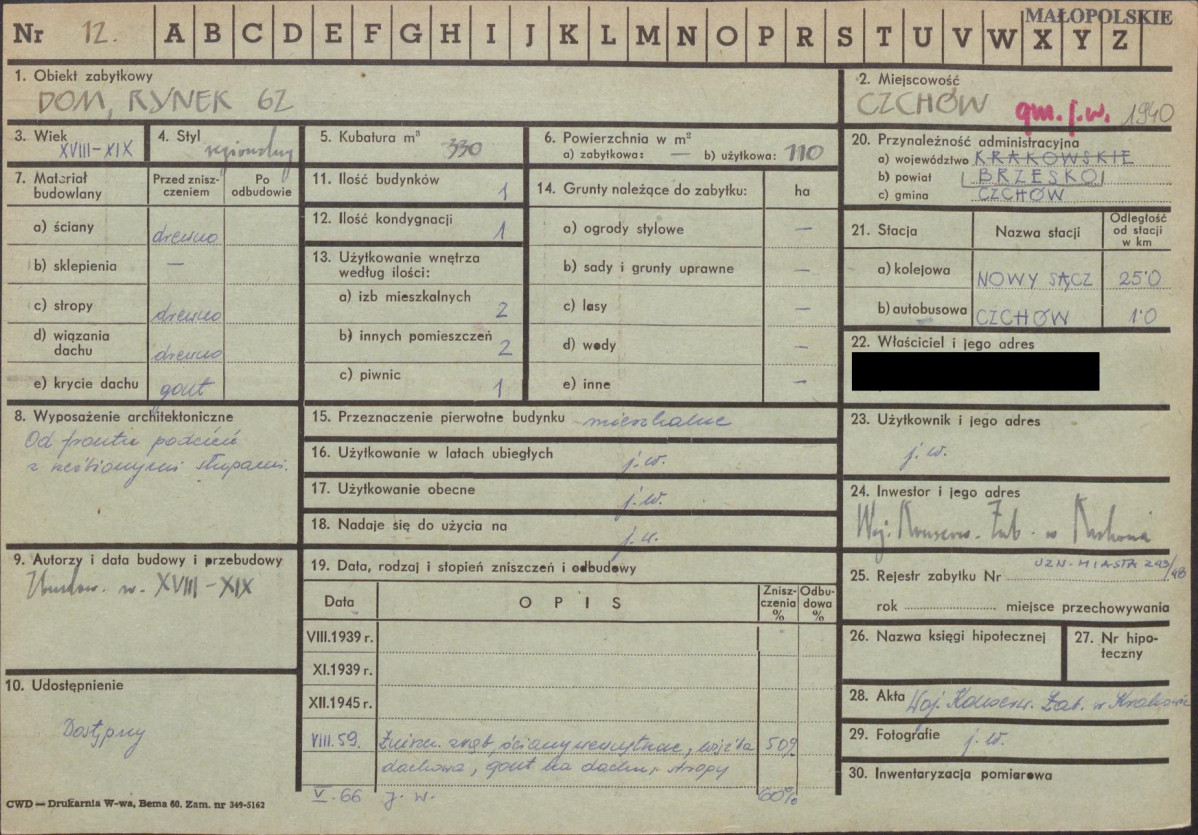 MAŁOPOLSKIE
Nr 12. A B C D E F G H I J K L M N O P R S T U V W X Y Z
1. Obiekt zabytkowy
DOM, RYNEK 62
2. Miejscowość
CZCHÓW gm. j.w. 1940
3. Wiek
XVIII-XIX
4. Styl
regionalny
5. Kubatura m³
330
6. Powierzchnia w m²
a) zabytkowa: — b) użytkowa: 110
7. Materiał budowlany
Przed zniszczeniem
Po odbudowie
a) ściany drewno
b) sklepienia —
c) stropy drewno
d) wiązania dachu drewno
e) krycie dachu gont
8. Wyposażenie architektoniczne
Od frontu podcień
z rzeźbionymi słupami.
9. Autorzy i data budowy i przebudowy
Zbudow. w. XVIII-XIX
10. Udostępnienie
Dostępny
11. Ilość budynków 1
12. Ilość kondygnacji 1
13. Użytkowanie wnętrza
według ilości:
a) izb mieszkalnych 2
b) innych pomieszczeń 2
c) piwnic 1
14. Grunty należące do zabytku: ha
a) ogrody stylowe —
b) sady i grunty uprawne —
c) lasy —
d) wody —
e) inne —
15. Przeznaczenie pierwotne budynku mieszkalne
16. Użytkowanie w latach ubiegłych j.w.
17. Użytkowanie obecne j.w.
18. Nadaje się do użycia na j.w.
19. Data, rodzaj i stopień zniszczeń i odbudowy
Data OPIS Zniszczenia % Odbudowa %
VIII.1939 r.
XI.1939 r.
XII.1945 r.
VIII.59. Zniszcz. zrąb, ściany wewnętrzne, więźba 50%
dachowa, gont na dachu, stropy
V.66 j.w. 60%
20. Przynależność administracyjna
a) województwo KRAKOWSKIE
b) powiat BRZESKO
c) gmina CZCHÓW
21. Stacja
Nazwa stacji
Odległość od stacji w km
a) kolejowa NOWY SĄCZ 25'0
b) autobusowa CZCHÓW 1'0
22. Właściciel i jego adres
23. Użytkownik i jego adres
j.w.
24. Inwestor i jego adres
Woj. Konserw. Zab. w Krakowie
25. Rejestr zabytku Nr UZN. MIASTA 293/48
rok miejsce przechowywania
26. Nazwa księgi hipotecznej
27. Nr hipoteczny
28. Akta Woj. Konserw. Zab. w Krakowie
29. Fotografie j.w.
30. Inwentaryzacja pomiarowa
CWD — Drukarnia W-wa, Bema 60. Zam. nr 349-5162